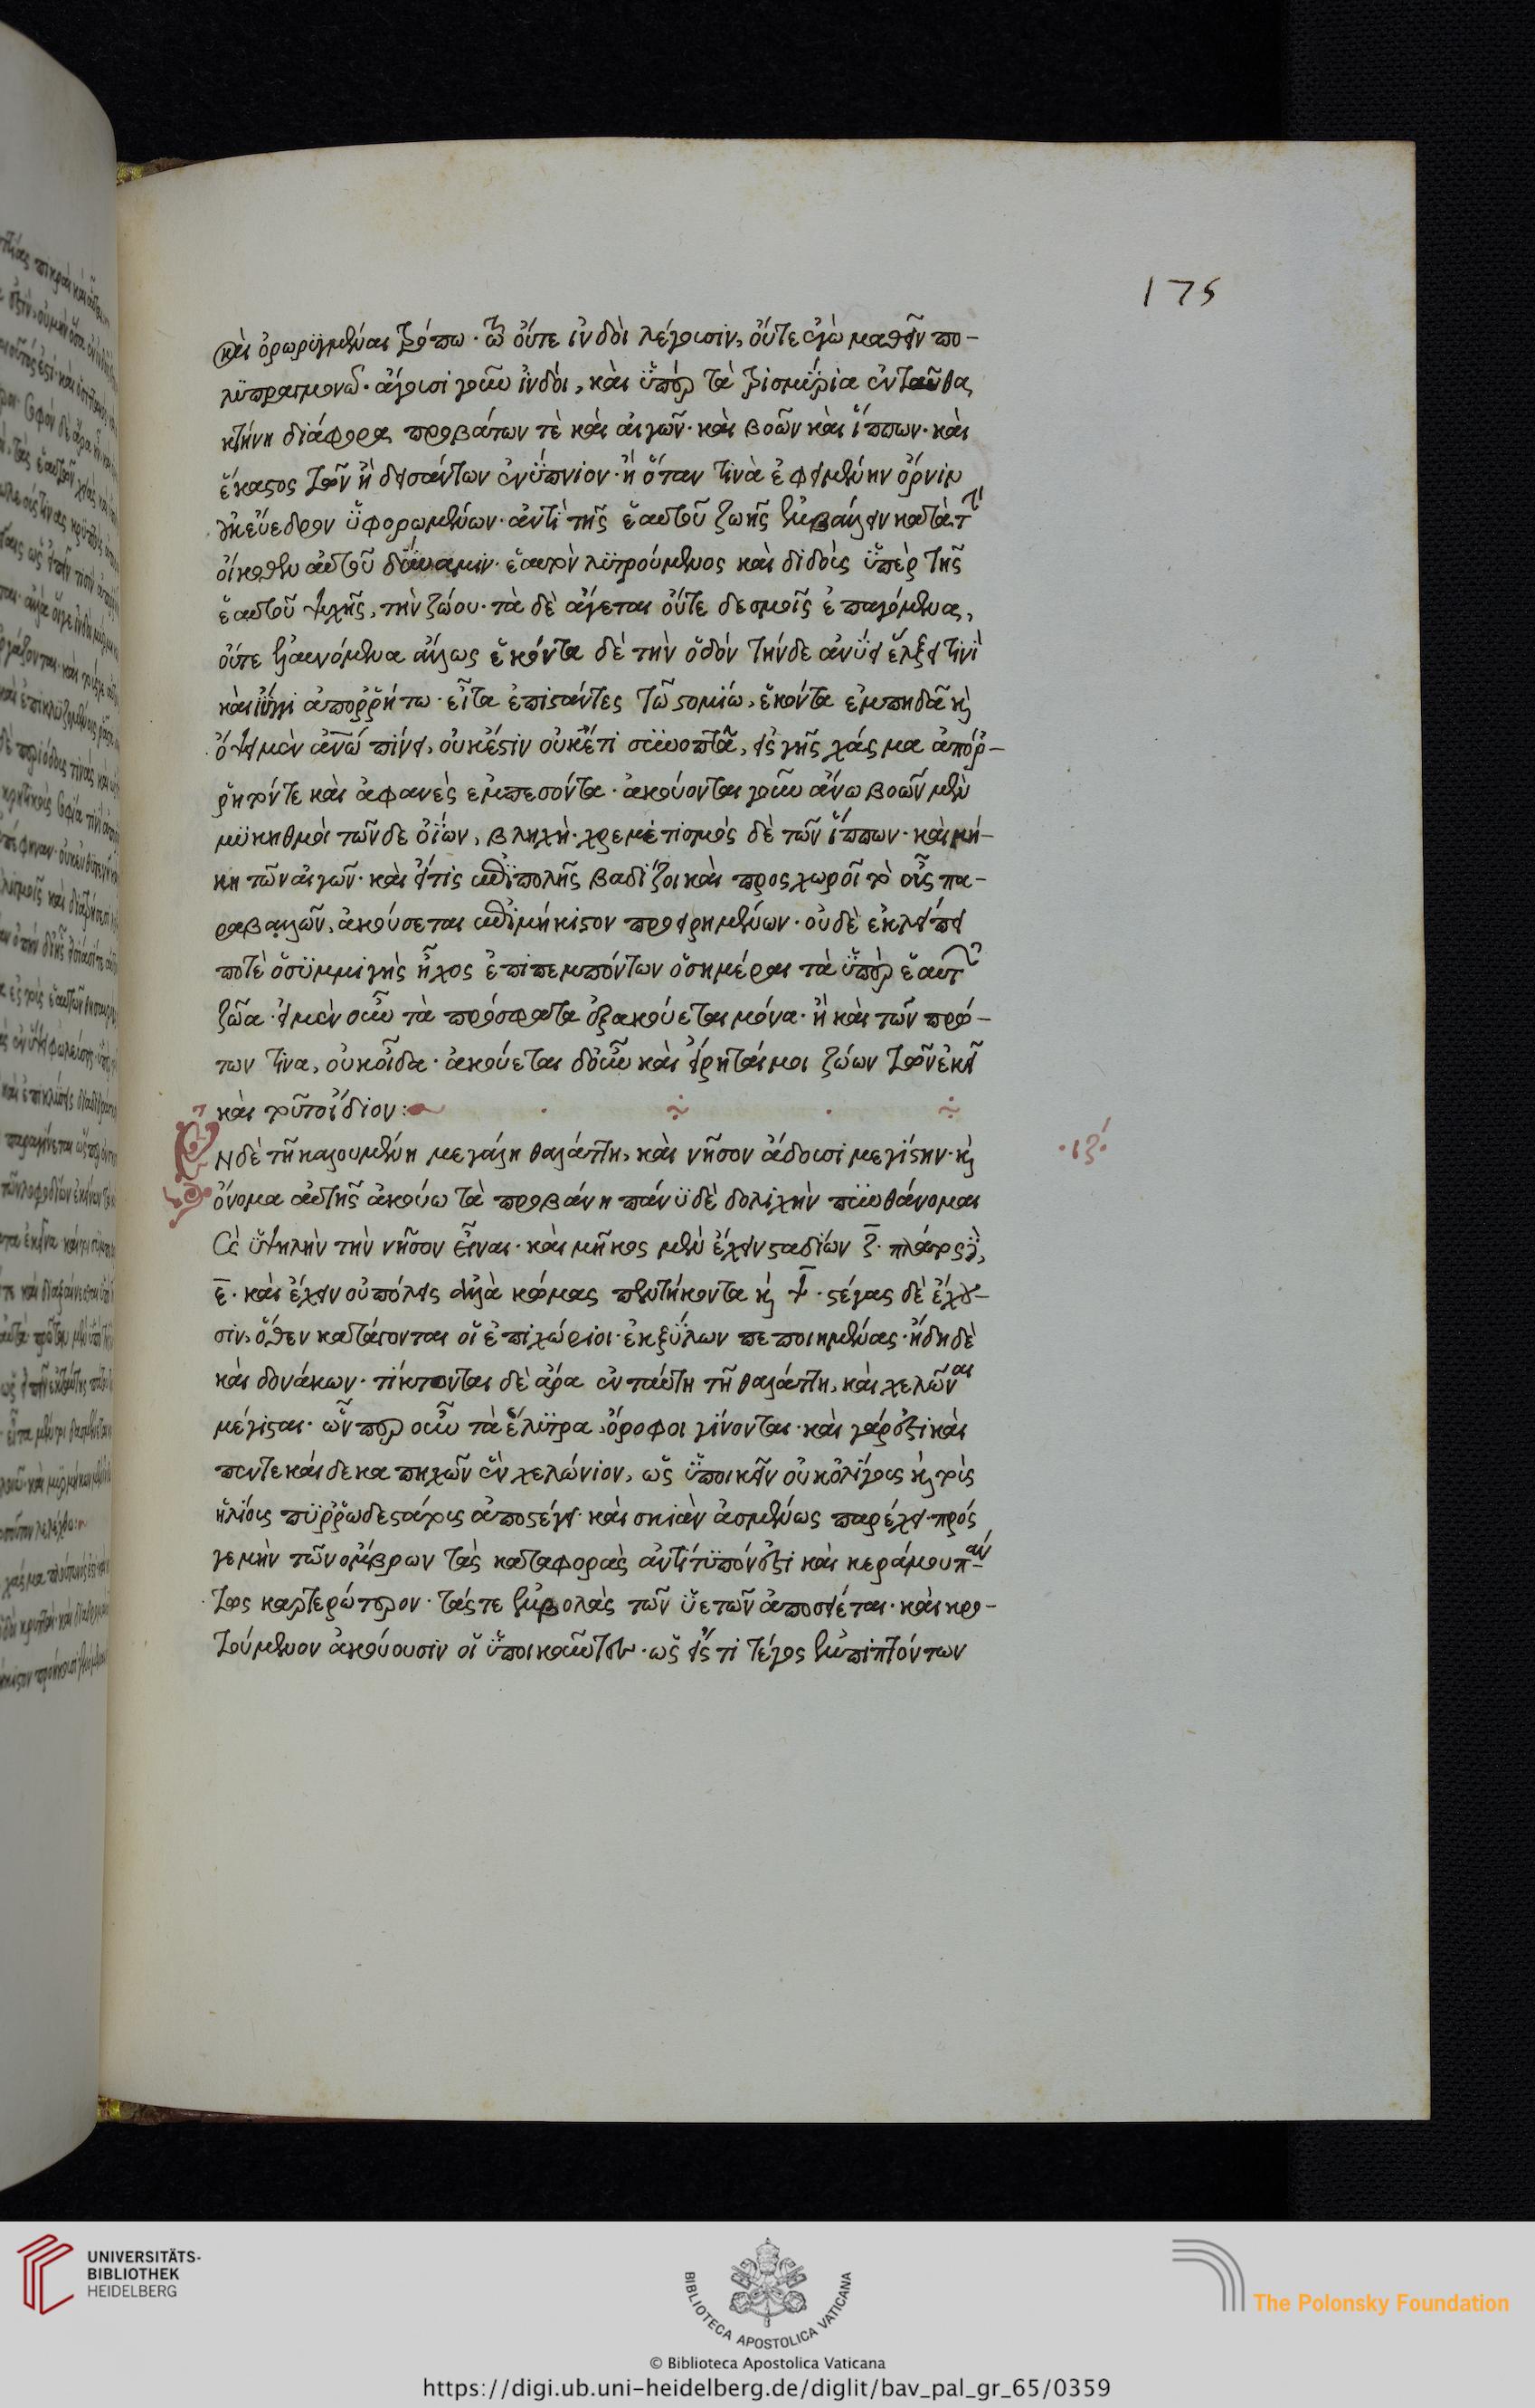 175
καὶ ὀρωρυγμέναι τρόπω· ὧ οὔτε ἰνδοὶ λέγουσιν, οὔτε ἐγὼ μαθεῖν πο-
λυπραγμονῶ· ἄγουσι γοῦν ἰνδοὶ, καὶ ὑπὲρ τὰ τρισμύρια ἐνταῦθα
κτήνη διάφορα προβάτων τὲ καὶ αἰγῶν· καὶ βοῶν καὶ ἵππων· καὶ
ἕκαστος τῶν ἢ δεισάντων ἐνύπνιον· ἢ ὅταν τινὰ ἐφειμένην ὄρνιν
οὐκ εὔεδρον ὑφορωμένων· ἀντὶ τῆς ἑαυτοῦ ζωῆς ἐμβάλλειν κατὰ τὴν
οἴκοθεν αὐτοῦ δύναμιν· ἑαυτὸν λυτρούμενος καὶ διδοὺς ὑπὲρ τῆς
ἑαυτοῦ ψυχῆς, τὴν ζώου· τὰ δὲ ἄγεται οὔτε δεσμοῖς ἐπαγόμενα,
οὔτε ἐλαυνόμενα ἄλλως ἑκόντα δὲ τὴν ὁδὸν τήνδε ἀνύει ἕλξει τινὶ
καὶ ἴϋγγι ἀπορρήτω· εἶτα ἐπιστάντες τῶ στομίω, ἑκόντα ἐμπηδᾶ καὶ
οὐκέστιν οὐκέτι σύνοπτα, εἰς γῆς χάσμα ἀπόρ-
ρητόν τε καὶ ἀφανὲς ἐμπεσόντα· ἀκούονται γοῦν ἄνω βοῶν μὲν
μυκηθμοὶ τῶν δε οἰῶν, βληχὴ· χρεμετισμὸς δὲ τῶν ἵππων· καὶ μή-
κη τῶν αἰγῶν· καὶ εἴτις ἐπιπολῆς βαδίζοι καὶ προσχωροῖ τὸ οὖς πα-
ραβαλλῶν, ἀκούσεται ἐπιμήκιστον προειρημένων· οὐδὲ ἐκλείπει
ποτὲ ὁ συμμιγὴς ἦχος ἐπιπεμπόντων ὁσημέραι τὰ ὑπὲρ ἑαυτῶν
ζῶα· εἰ μὲν οὖν τὰ πρόσφατα ἐξακούεται μόνα· ἢ καὶ τῶν πρό-
των τινα, οὐκ οἶδα· ἀκούεται δ' οὖν καὶ εἴρηταί μοι ζώων τῶν ἐκεῖ
καὶ τοῦτο ἴδιον:
Ἐν δὲ τῆ καλουμένη μεγάλη θαλάττη, καὶ νῆσον ἄδουσι μεγίστην· καὶ
ὄνομα αὐτῆς ἀκούω ταπροβάνη πάνυ δὲ δολιχὴν πυνθάνομαι
καὶ ὑψηλὴν τὴν νῆσον εἶναι· καὶ μῆκος μὲν ἔχειν σταδίων ζ· πλάτος δὲ,
ε· καὶ ἔχειν οὐ πόλεις ἀλλὰ κώμας πεντήκοντα καὶ ψ· στέγας δὲ ἔχου-
σιν, ὅθεν κατάγονται οἱ ἐπιχώριοι· ἐκ ξύλων πεποιημένας· ἤδη δὲ
καὶ δονάκων· τίκτονται δὲ ἄρα ἐν ταύτη τῆ θαλάττη, καὶ χελῶναι
μέγισται· ὧν περ οὖν τὰ ἔλυτρα, ὄροφοι γίνονται· καὶ γάρ ἐστι καὶ
πεντεκαίδεκα πηχῶν ἓν χελώνιον, ὡς ὑποικεῖν οὐκ ὀλίγους καὶ τοὺς
ἡλίους πυρρωδεστάτους ἀποστέγει· καὶ σκιὰν ἀσμένως παρέχει· πρός
γε μὴν τῶν ὄμβρων τὰς καταφορὰς ἀντίτυπόν ἐστι καὶ κεράμου παν-
τὸς καρτερώτερον· τάς τε ἐμβολὰς τῶν ὑετῶν ἀποσείεται· καὶ κρο-
τούμενον ἀκούουσιν οἱ ὑποικοῦντες· ὡς εἴς τι τέγος ἐμπιπτόντων
·ιζ·
UNIVERSITÄTS-
BIBLIOTHEK
HEIDELBERG
BIBLIOTECA APOSTOLICA VATICANA
The Polonsky Foundation
© Biblioteca Apostolica Vaticana
https://digi.ub.uni-heidelberg.de/diglit/bav_pal_gr_65/0359